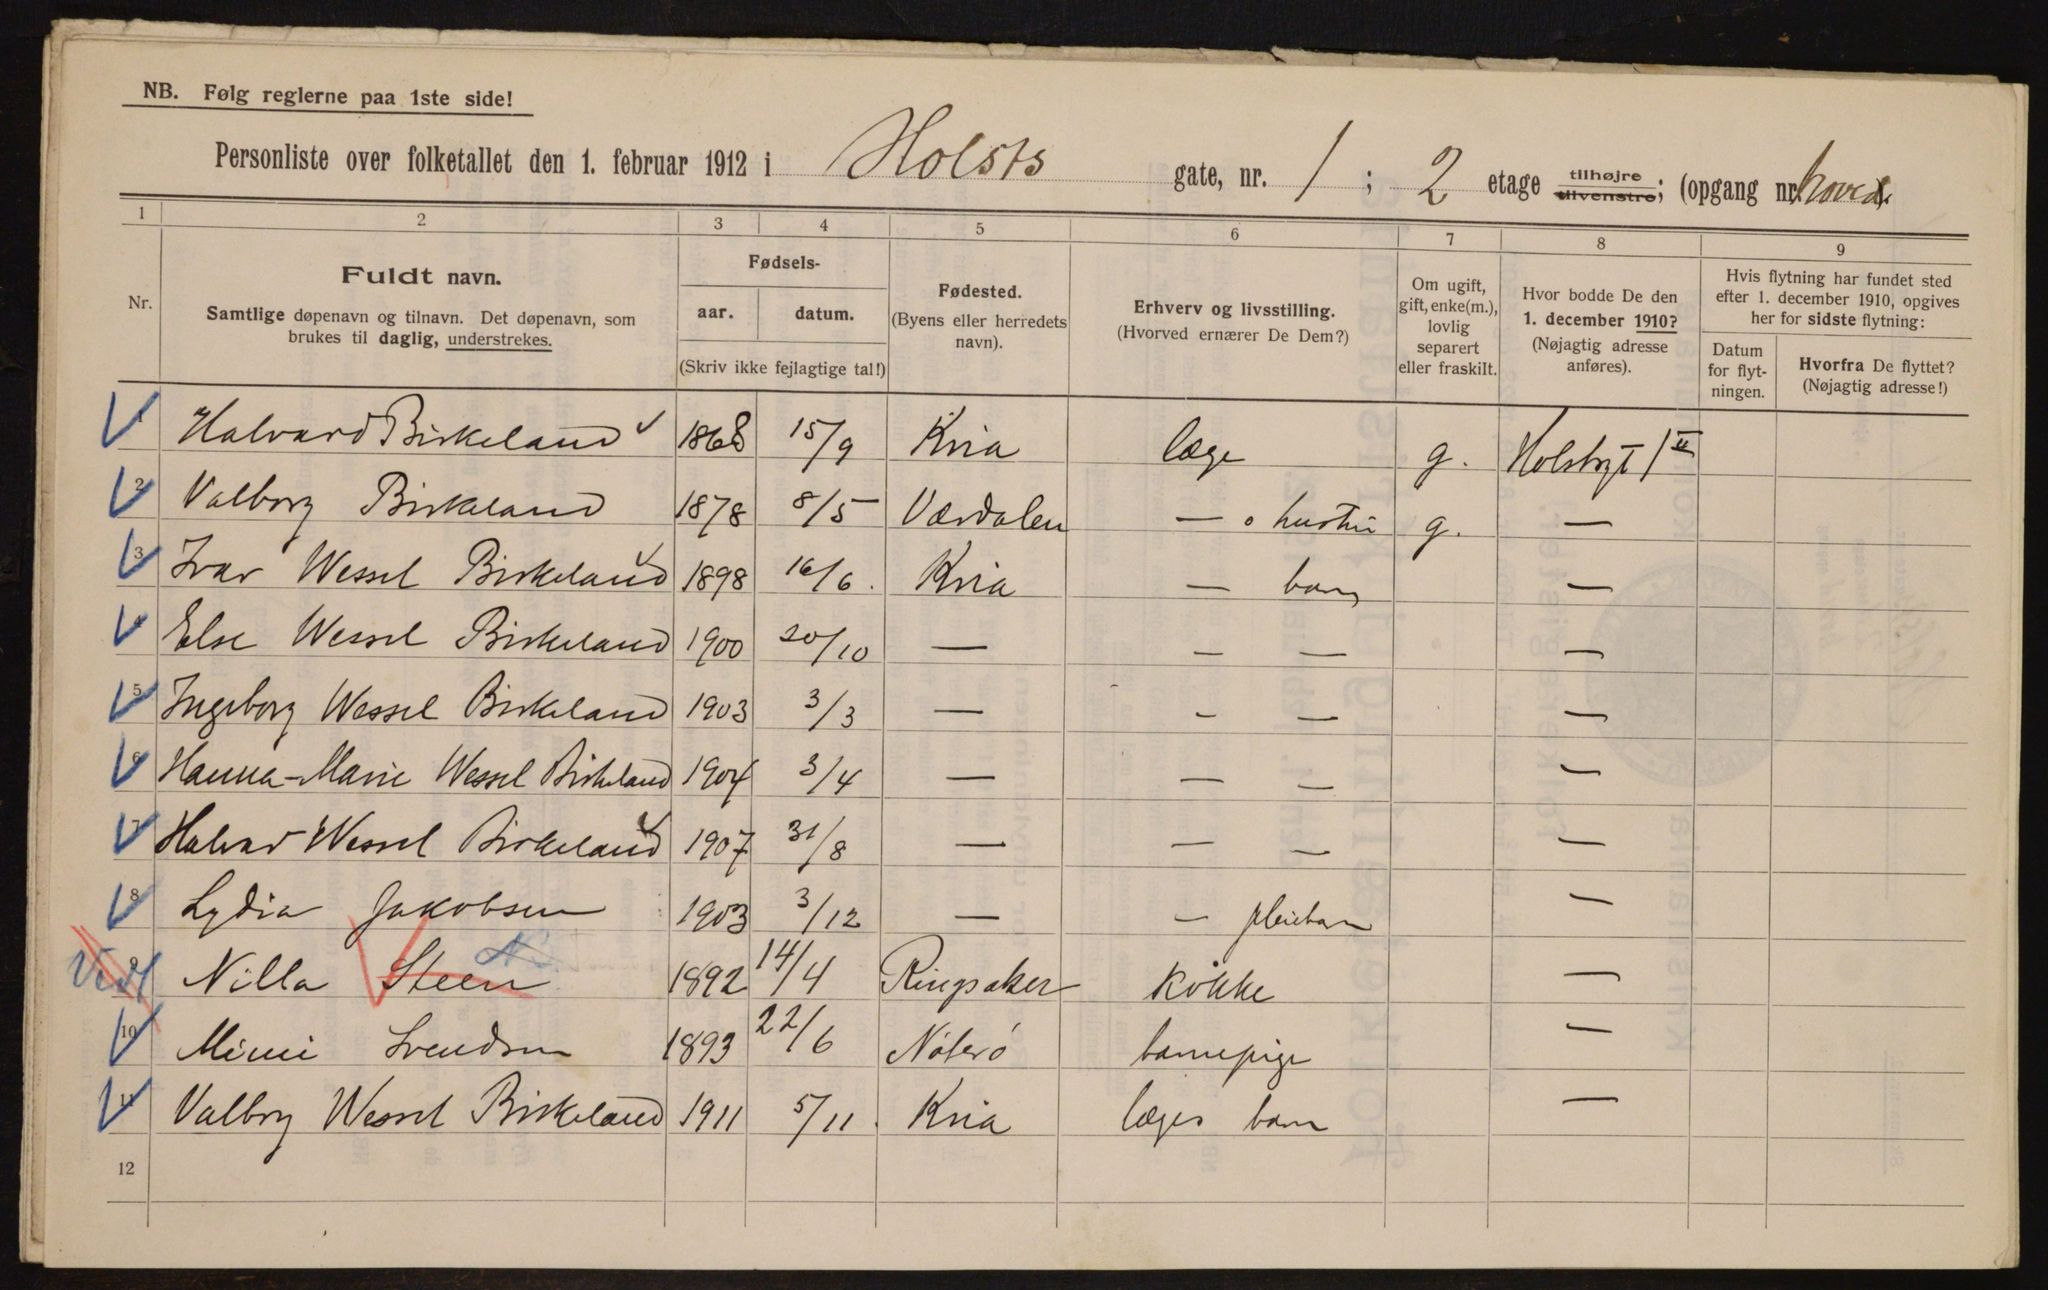 NB. Følg reglerne paa 1ste side!
Personliste over folketallet den 1. februar 1912 i Holsts gate, nr. 1 ; 2 etage tilhøjre tilvenstre; (opgang nr. hoved.
1 2 3 4 5 6 7 8 9
Nr.
Fuldt navn.
Samtlige døpenavn og tilnavn. Det døpenavn, som
brukes til daglig, understrekes.
Fødsels-
aar. datum.
(Skriv ikke fejlagtige tal!)
Fødested.
(Byens eller herredets
navn).
Erhverv og livsstilling.
(Hvorved ernærer De Dem?)
Om ugift,
gift, enke(m.),
lovlig
separert
eller fraskilt.
Hvor bodde De den
1. december 1910?
(Nøjagtig adresse
anføres).
Hvis flytning har fundet sted
efter 1. december 1910, opgives
her for sidste flytning:
Datum
for flyt-
ningen.
Hvorfra De flyttet?
(Nøjagtig adresse!)
1 Halvard Birkeland 1868 15/9 Kria læge g. Holstsgt 1 II
2 Valborg Birkeland 1878 8/5 Værdalen — s hustru g. —
3 Ivar Wessel Birkeland 1898 16/6. Kria — barn —
4 Else Wessel Birkeland 1900 20/10 — — — —
5 Ingeborg Wessel Birkeland 1903 3/3 — — — —
6 Hanna-Marie Wessel Birkeland 1904 3/4 — — — —
7 Halvar Wessel Birkeland 1907 31/8 — — — —
8 Lydia Jakobsen 1903 3/12 — — pleiebarn —
9 Nilla Steen 1892 14/4 Ringsaker kokke —
10 Mimi Svendsen 1893 22/6 Nøterø barnepige —
11 Valborg Wessel Birkeland 1911 5/11. Kria læges barn —
12